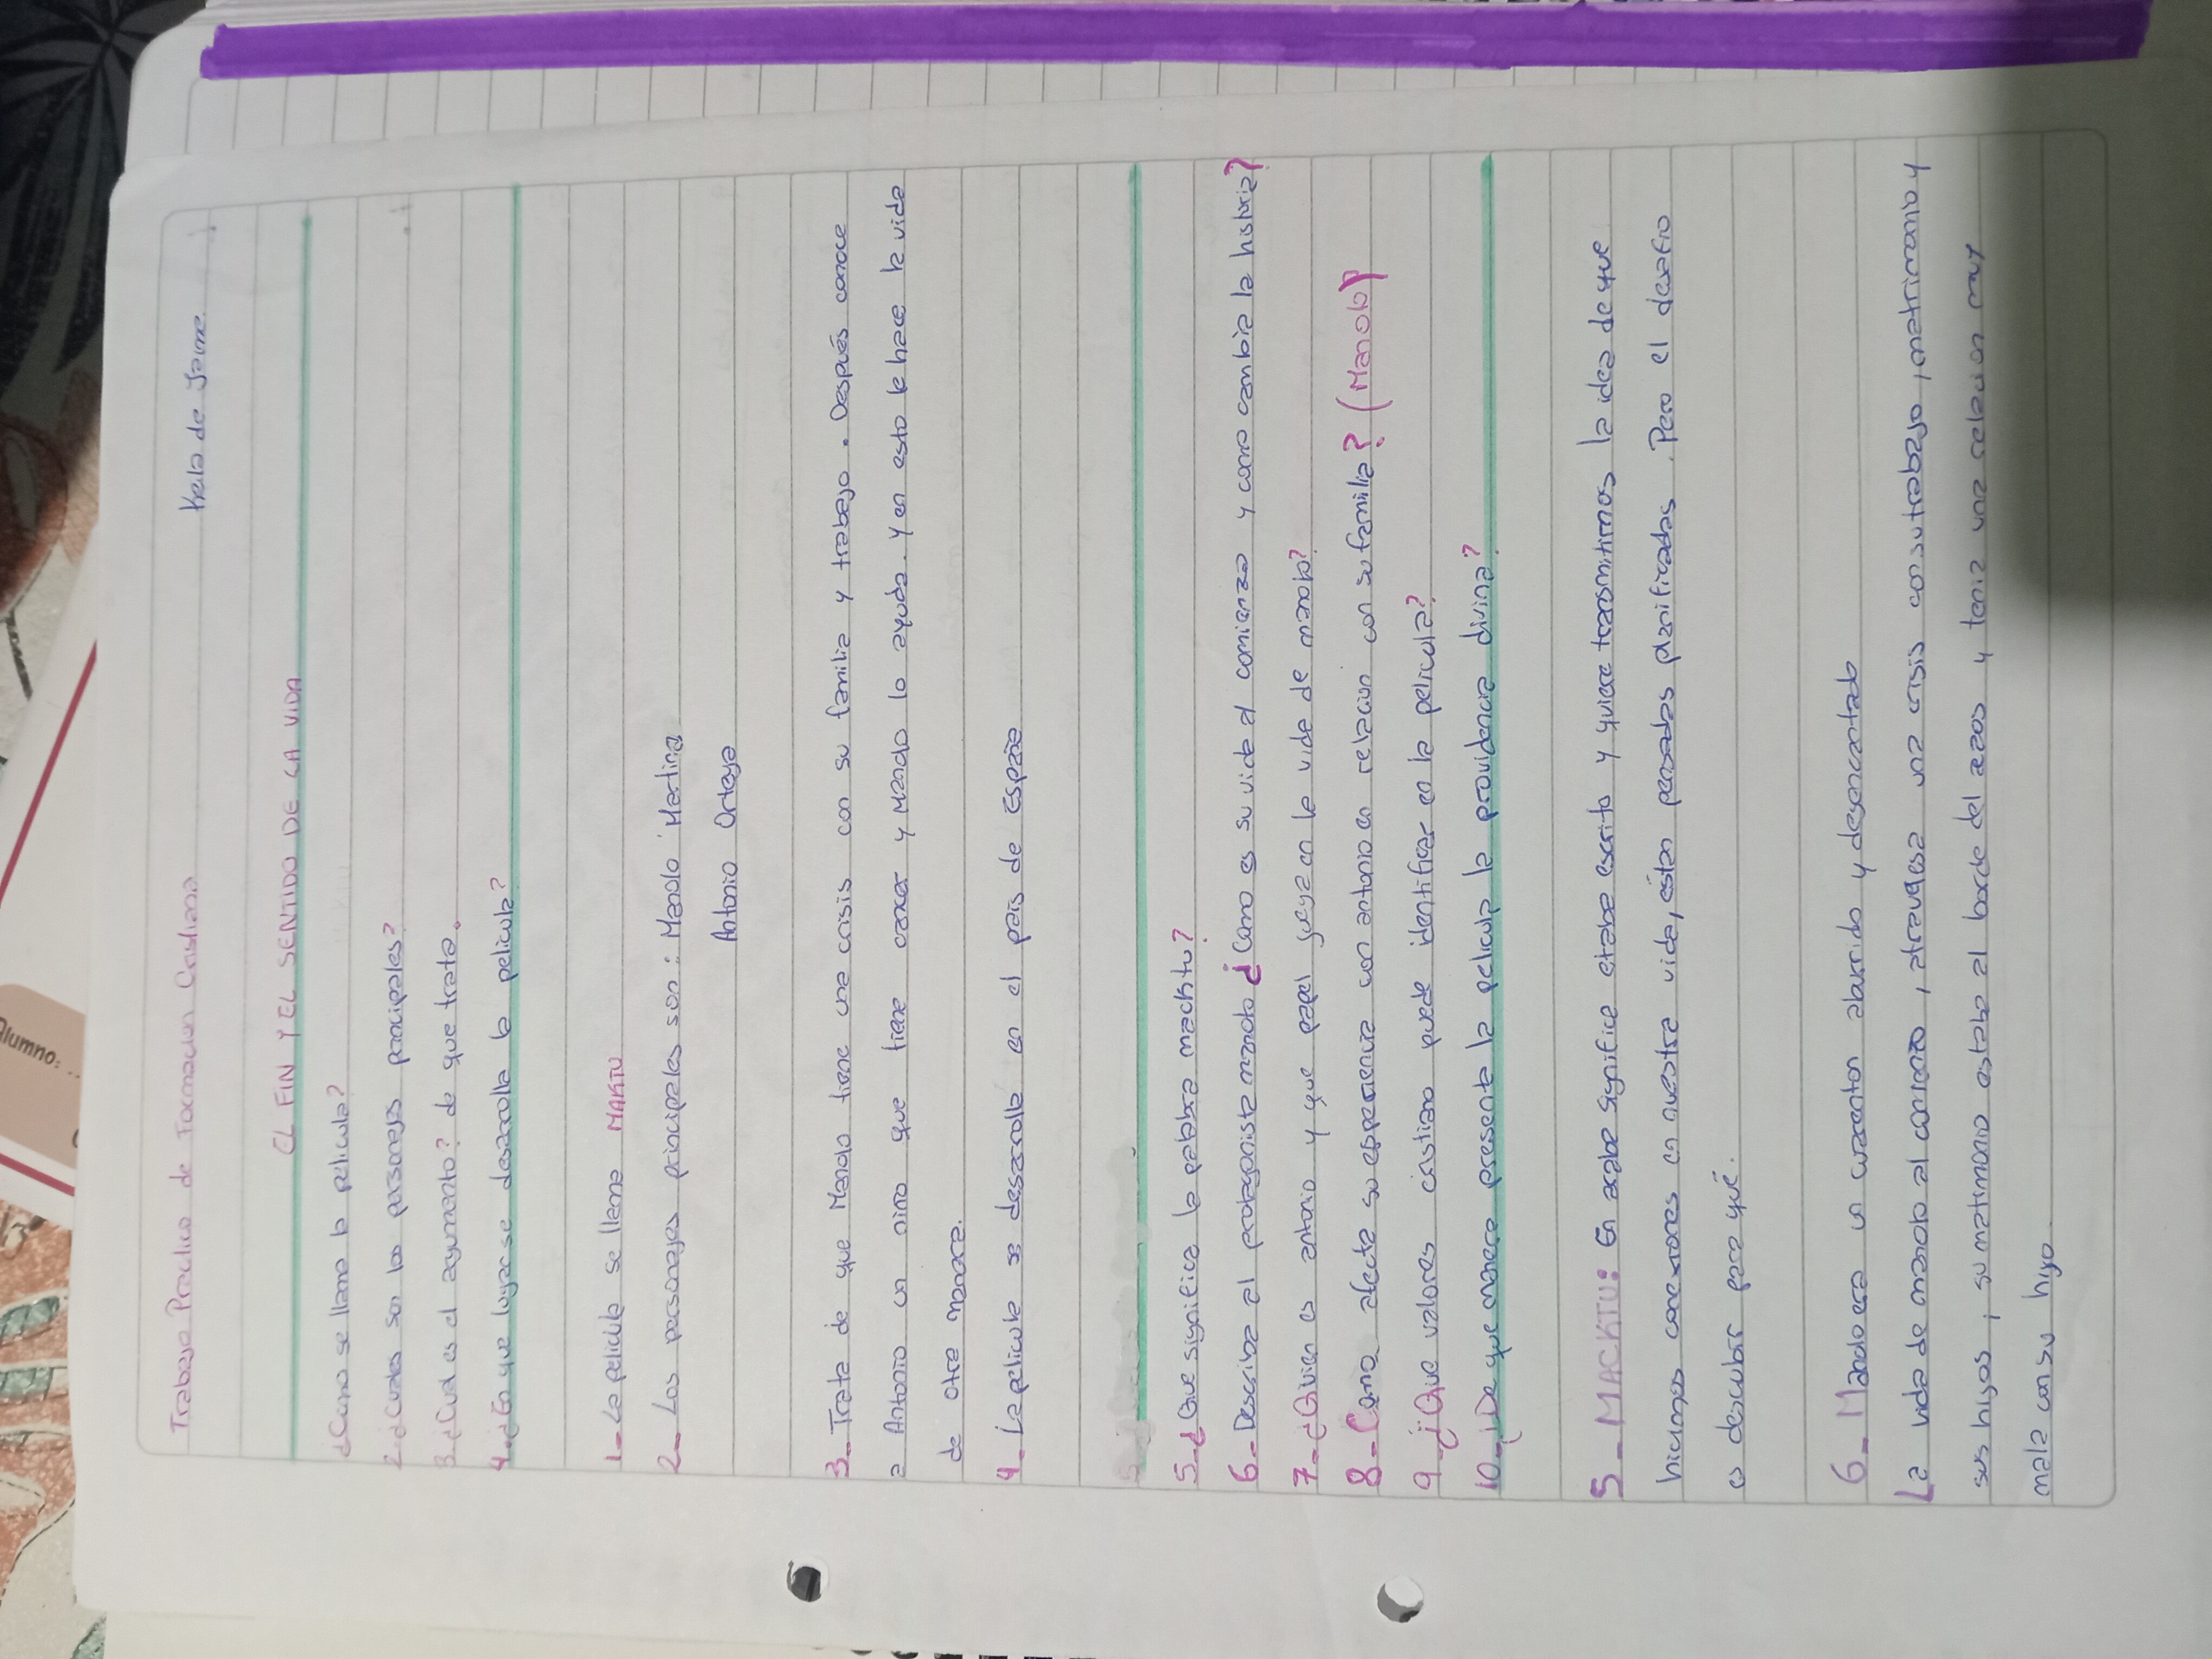 Alumno: ...
Trabajo Practico de Formacion Cristiana
Keila de Jaime
EL FIN Y EL SENTIDO DE LA VIDA
¿Como se llama la pelicula?
2.¿Cuales son los personajes principales?
3.¿Cual es el argumento? de que trata.
4.¿En que lugar se desarrolla la pelicula?
1_ La pelicula se llama MAKTU
2_ Los personajes principales son: Manolo Martina
Antonio Ortega
3_ Trata de que Manolo tiene una crisis con su familia y trabajo. Después conoce
a Antonio un nino que tiene cancer y Manolo lo ayuda. y en esto le hace la vida
de otra manera.
4_ La pelicula se desarrolla en el pais de España
5_¿Que significa la palabra macktu?
6_ Describa al protagonista manolo ¿Como es su vida al comienzo y como cambia la historia?
7_¿Quien es antonio y que papel juega en la vida de manolo?
8_Como afecta su esperiencia con antonio en relacion con su familia? (Manolo)
9_¿Que valores cristiano puede identificar en la pelicula?
10_¿De que manera presenta la pelicula la providencia divina?
5_ MACKTU: En arabe significa etaba escrito y quiere transmitirnos la idea de que
hicimos conexiones en nuestra vida, están pensadas planificadas. Pero el desafio
es descubrir para qué.
6_ Manolo era un cuarenton aburrido y desencantado
La vida de manolo al comienzo, atraviesa una crisis con su trabajo, matrimonio y
sus hijos, su matimonio estaba al borde del azos y tenia una relacion muy
mala con su hijo